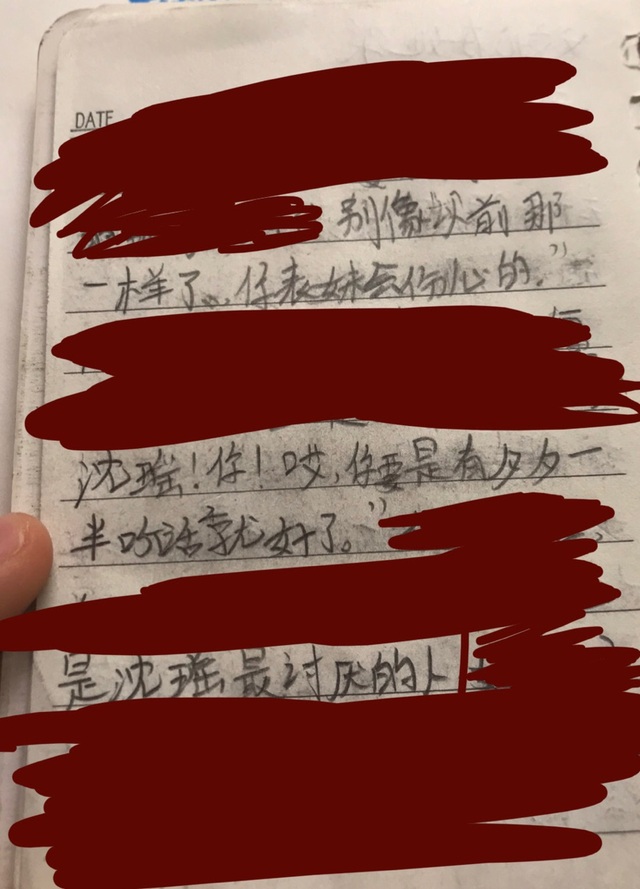 DATE
别像以前那
一样了..仔表妹会伤心的."
沈瑶!你!哎,你要是有夕夕一
半听话就好了。"
是沈瑶最讨厌的人